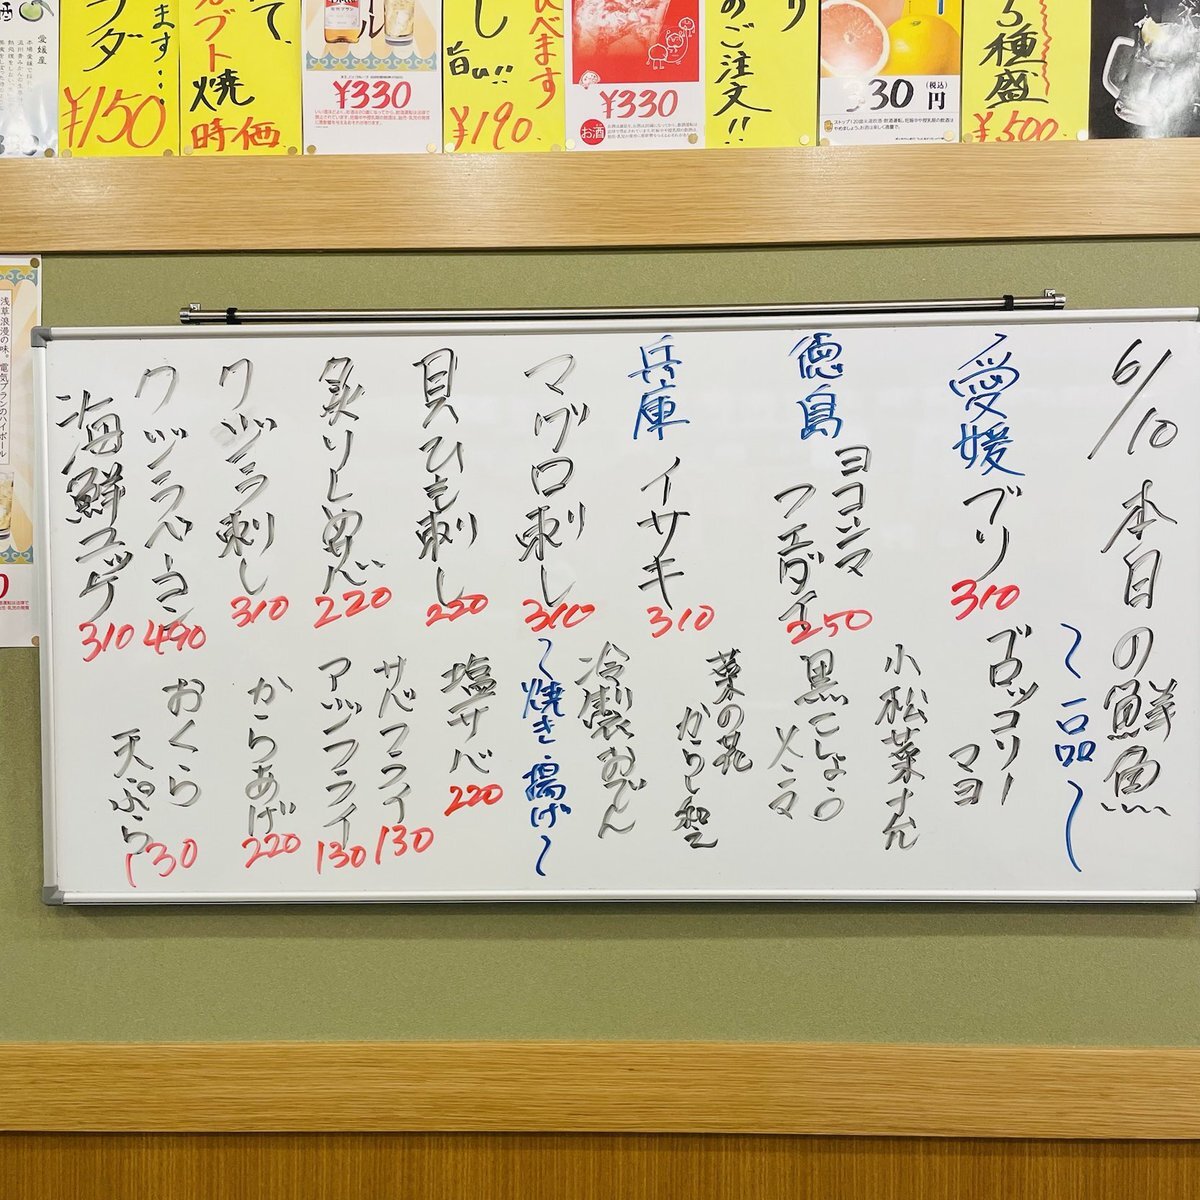 ます…
ダ
¥150
て、
カブト焼
時価
¥330
し
旨い!!
¥190
べます
¥330
お酒
り
のご注文!!
330円
(税込)
5種盛
¥500
愛媛産
浅草浪漫の味。電気ブランのハイボール
6/10 本日の鮮魚
愛媛 ブリ 310
徳島 ヨコシマフエダイ 250
兵庫 イサキ 310
マグロ刺し 310
貝ひも刺し 220
炙りしめサバ 220
クジラ刺し 310
クジラベーコン 490
海鮮ユッケ 310
〜一品〜
ブロッコリーマヨ
小松菜ナムル
黒こしょうメンマ
菜の花からし和え
冷製おでん
〜焼き・揚げ〜
塩サバ 220
サバフライ 130
アジフライ 130
からあげ 220
おくら天ぷら 130